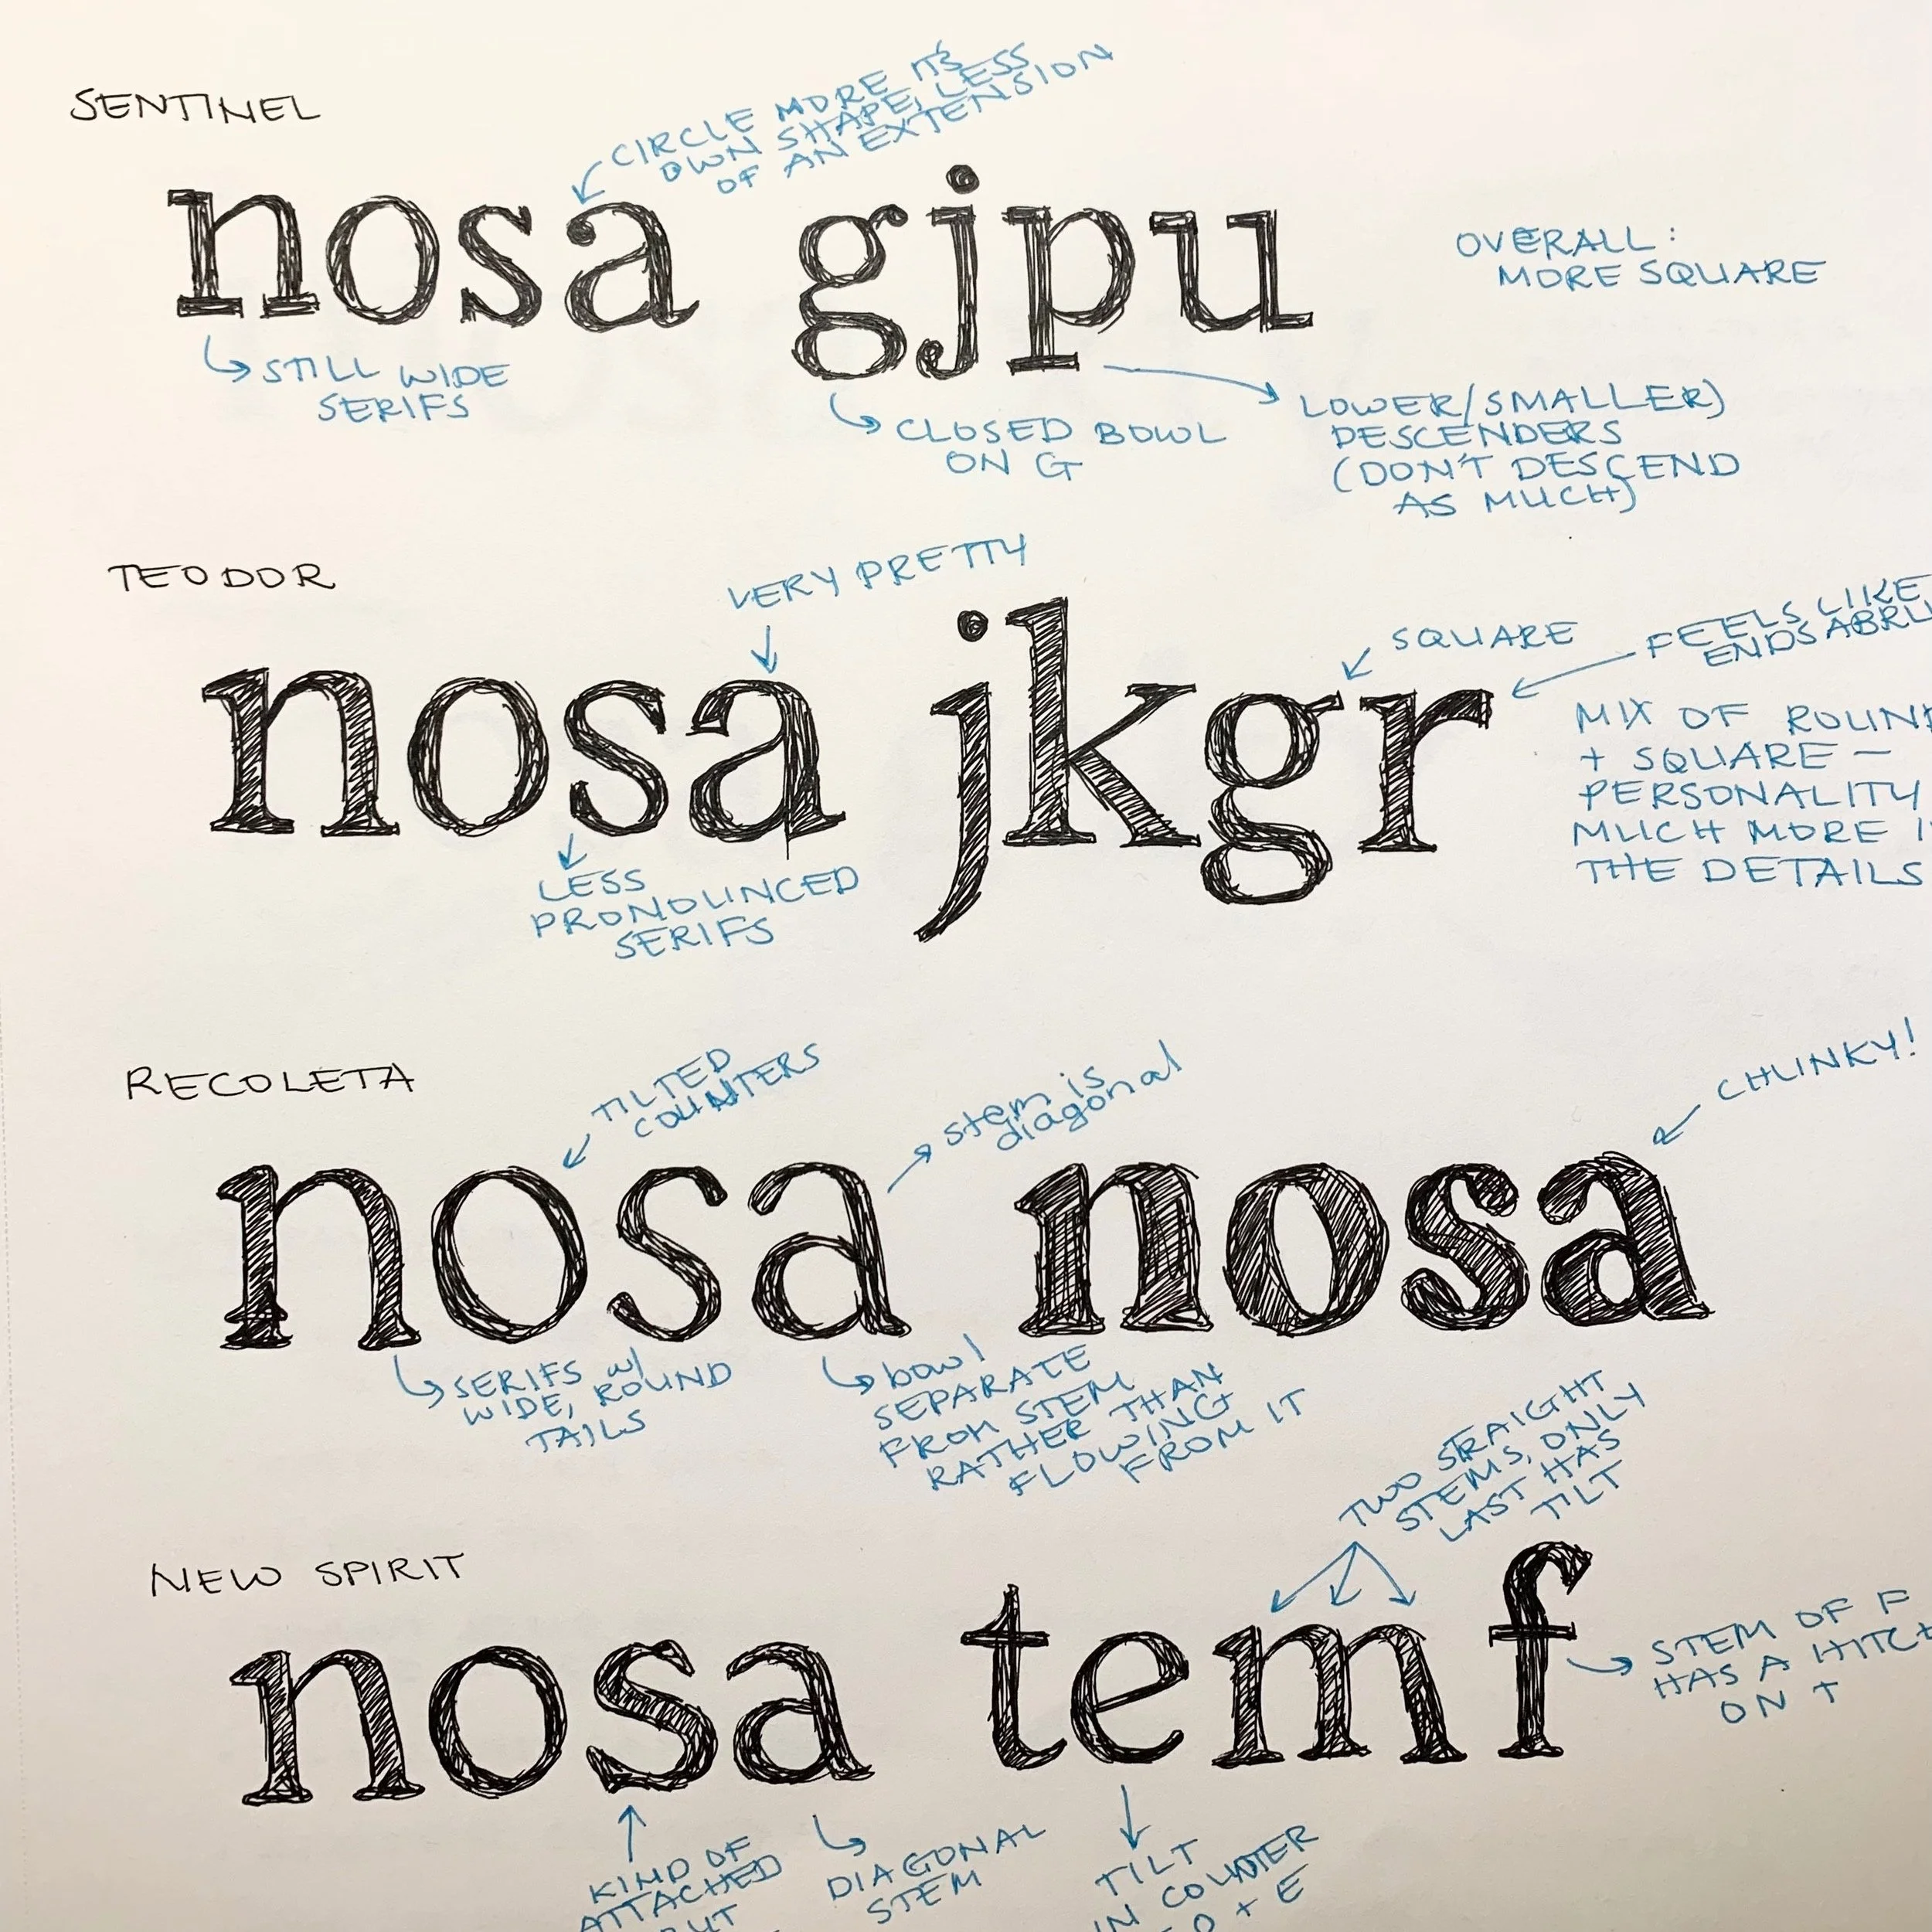 SENTINEL
CIRCLE MORE ITS
OWN SHAPE, LESS
OF AN EXTENSION
nosa gjpu
OVERALL:
MORE SQUARE
STILL WIDE
SERIFS
CLOSED BOWL
ON G
LOWER/SMALLER)
DESCENDERS
(DON'T DESCEND
AS MUCH)
TEODOR
VERY PRETTY
SQUARE
FEELS LIKE
ENDS ABRU
nosa jkgr
MIX OF ROUN
+ SQUARE —
PERSONALITY
MUCH MORE I
THE DETAILS
LESS
PRONOUNCED
SERIFS
RECOLETA
TILTED
COUNTERS
stem is
diagonal
CHUNKY!
nosa nosa
SERIFS w/
WIDE, ROUND
TAILS
bowl
SEPARATE
FROM STEM
RATHER THAN
FLOWING
FROM IT
TWO STRAIGHT
STEMS, ONLY
LAST HAS
TILT
NEW SPIRIT
nosa temf
STEM OF F
HAS A HITCH
ON T
KIND OF
ATTACHED
DIAGONAL
STEM
TILT
IN COUNTER
O + E